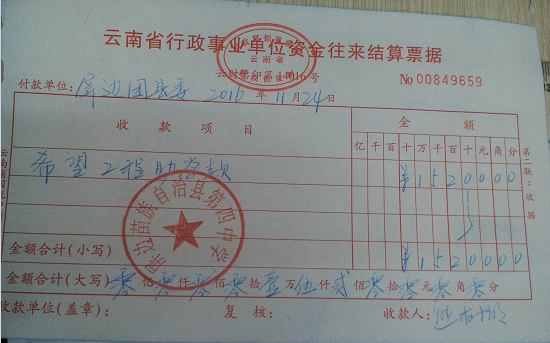 云南省行政事业单位资金往来结算票据
云南省
No 00849659
付款单位: 屏边团县委 2016 年 11 月 24 日
收款项目 金额
亿 千 百 十 万 千 百 十 元 角 分
希望工程助学款 ¥ 1 5 2 0 0 0 0
屏边苗族自治县第四中学
金额合计(小写) ¥ 1 5 2 0 0 0 0
金额合计(大写) 零 亿 零 仟 零 佰 零 拾 壹 万 伍 仟 贰 佰 零 拾 零 元 零 角 零 分
收款单位(盖章): 复核: 收款人:
第二联:收据